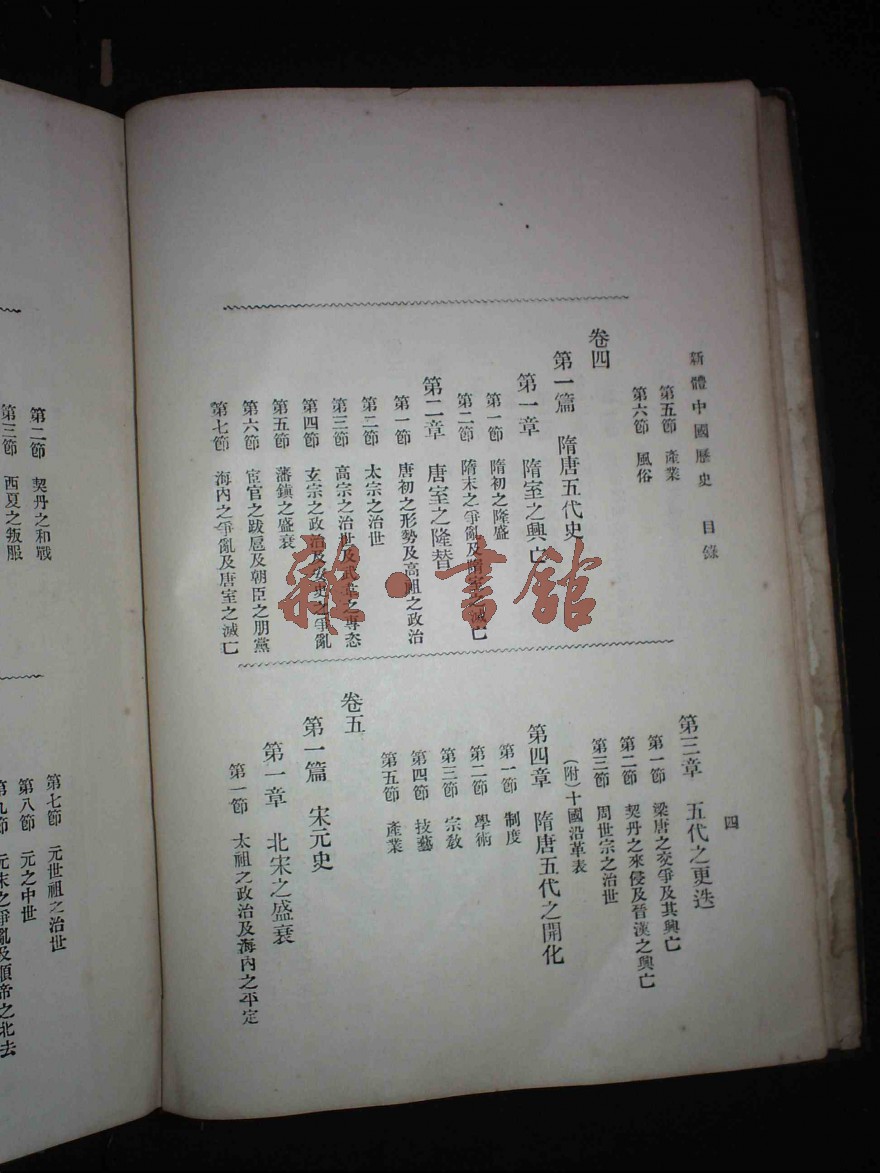 新體中國歷史　目錄
四
第五節　產業
第六節　風俗
卷四
第一篇　隋唐五代史
第一章　隋室之興亡
第一節　隋初之隆盛
第二節　隋末之爭亂及隋室之滅亡
第二章　唐室之隆替
第一節　唐初之形勢及高祖之政治
第二節　太宗之治世
第三節　高宗之治世及武韋之專恣
第四節　玄宗之政治及安史之爭亂
第五節　藩鎮之盛衰
第六節　宦官之跋扈及朝臣之朋黨
第七節　海內之爭亂及唐室之滅亡
第三章　五代之更迭
第一節　梁唐之交爭及其興亡
第二節　契丹之來侵及晉漢之興亡
第三節　周世宗之治世
（附）十國沿革表
第四章　隋唐五代之開化
第一節　制度
第二節　學術
第三節　宗教
第四節　技藝
第五節　產業
卷五
第一篇　宋元史
第一章　北宋之盛衰
第一節　太祖之政治及海內之平定
第二節　契丹之和戰
第三節　西夏之叛服
第七節　元世祖之治世
第八節　元之中世
第九節　元末之爭亂及順帝之北去
雜·書館